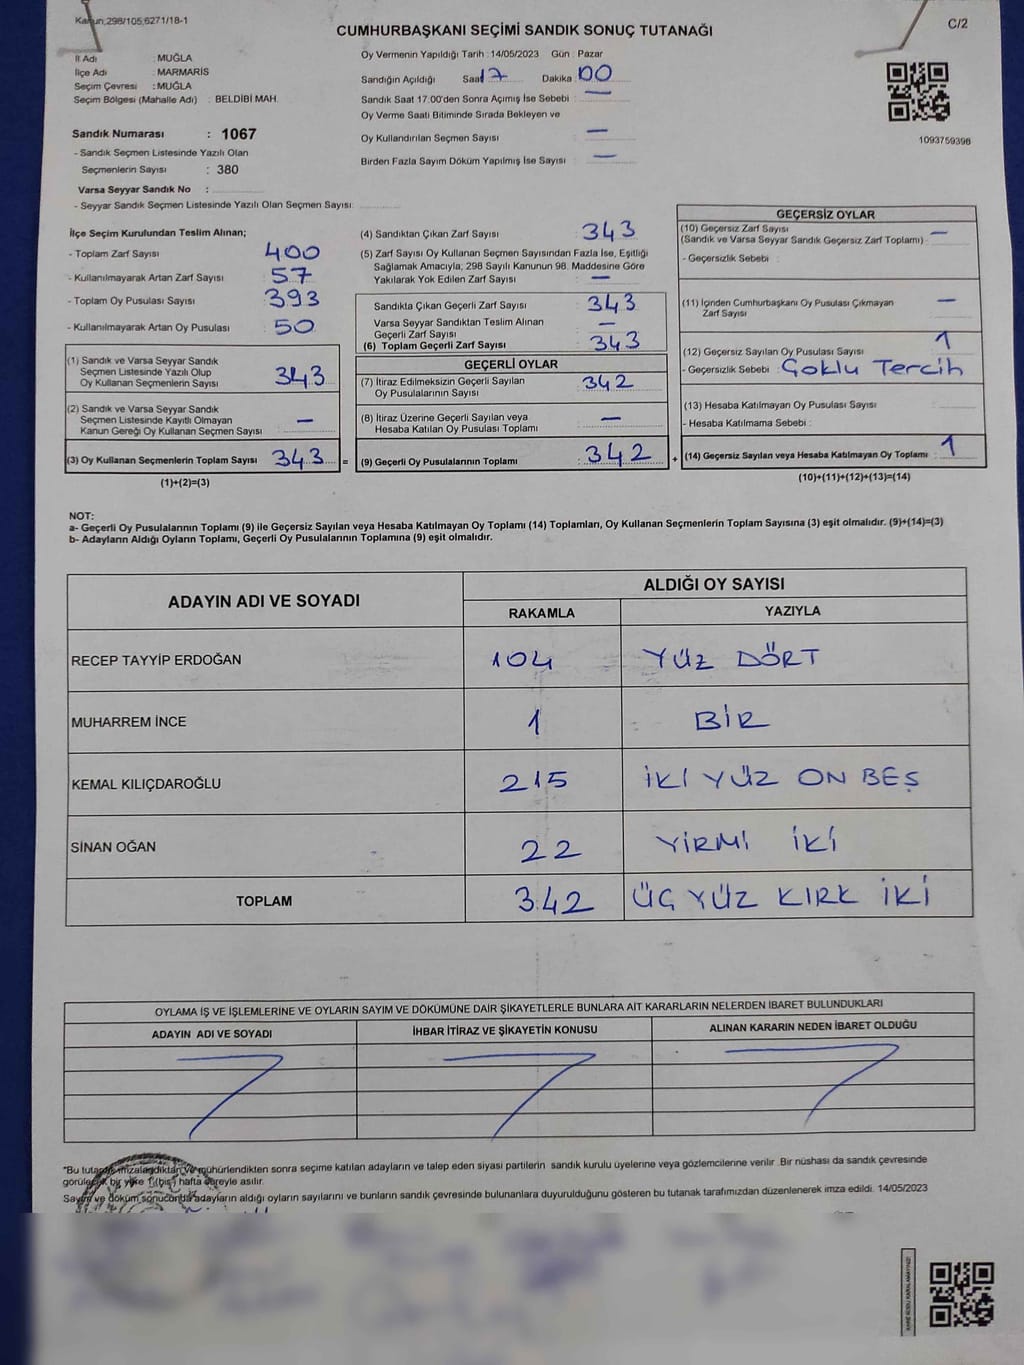 Kanun;298/105,6271/18-1
CUMHURBAŞKANI SEÇİMİ SANDIK SONUÇ TUTANAĞI
C/2
İl Adı : MUĞLA
İlçe Adı : MARMARİS
Seçim Çevresi : MUĞLA
Seçim Bölgesi (Mahalle Adı) : BELDİBİ MAH.
Sandık Numarası : 1067
- Sandık Seçmen Listesinde Yazılı Olan
Seçmenlerin Sayısı : 380
Varsa Seyyar Sandık No :
- Seyyar Sandık Seçmen Listesinde Yazılı Olan Seçmen Sayısı:
Oy Vermenin Yapıldığı Tarih : 14/05/2023 Gün : Pazar
Sandığın Açıldığı Saat 17 Dakika 00
Sandık Saat 17:00'den Sonra Açımış İse Sebebi : —
Oy Verme Saati Bitiminde Sırada Bekleyen ve
Oy Kullandırılan Seçmen Sayısı —
Birden Fazla Sayım Döküm Yapılmış İse Sayısı : —
1093759396
İlçe Seçim Kurulundan Teslim Alınan;
- Toplam Zarf Sayısı : 400
- Kullanılmayarak Artan Zarf Sayısı : 57
- Toplam Oy Pusulası Sayısı : 393
- Kullanılmayarak Artan Oy Pusulası : 50
(1) Sandık ve Varsa Seyyar Sandık
Seçmen Listesinde Yazılı Olup
Oy Kullanan Seçmenlerin Sayısı : 343
(2) Sandık ve Varsa Seyyar Sandık
Seçmen Listesinde Kayıtlı Olmayan
Kanun Gereği Oy Kullanan Seçmen Sayısı : —
(3) Oy Kullanan Seçmenlerin Toplam Sayısı : 343 =
(1)+(2)=(3)
(4) Sandıktan Çıkan Zarf Sayısı : 343
(5) Zarf Sayısı Oy Kullanan Seçmen Sayısından Fazla İse, Eşitliği
Sağlamak Amacıyla, 298 Sayılı Kanunun 98. Maddesine Göre
Yakılarak Yok Edilen Zarf Sayısı : —
Sandıkta Çıkan Geçerli Zarf Sayısı : 343
Varsa Seyyar Sandıktan Teslim Alınan
Geçerli Zarf Sayısı : —
(6) Toplam Geçerli Zarf Sayısı : 343
GEÇERLİ OYLAR
(7) İtiraz Edilmeksizin Geçerli Sayılan
Oy Pusulalarının Sayısı : 342
(8) İtiraz Üzerine Geçerli Sayılan veya
Hesaba Katılan Oy Pusulası Toplamı : —
(9) Geçerli Oy Pusulalarının Toplamı : 342 +
GEÇERSİZ OYLAR
(10) Geçersiz Zarf Sayısı
(Sandık ve Varsa Seyyar Sandık Geçersiz Zarf Toplamı) : —
- Geçersizlik Sebebi :
(11) İçinden Cumhurbaşkanı Oy Pusulası Çıkmayan
Zarf Sayısı : —
(12) Geçersiz Sayılan Oy Pusulası Sayısı : 1
- Geçersizlik Sebebi : Çoklu Tercih
(13) Hesaba Katılmayan Oy Pusulası Sayısı :
- Hesaba Katılmama Sebebi :
(14) Geçersiz Sayılan veya Hesaba Katılmayan Oy Toplamı : 1
(10)+(11)+(12)+(13)=(14)
NOT:
a- Geçerli Oy Pusulalarının Toplamı (9) ile Geçersiz Sayılan veya Hesaba Katılmayan Oy Toplamı (14) Toplamları, Oy Kullanan Seçmenlerin Toplam Sayısına (3) eşit olmalıdır. (9)+(14)=(3)
b- Adayların Aldığı Oyların Toplamı, Geçerli Oy Pusulalarının Toplamına (9) eşit olmalıdır.
ADAYIN ADI VE SOYADI
ALDIĞI OY SAYISI
RAKAMLA YAZIYLA
RECEP TAYYİP ERDOĞAN 104 YÜZ DÖRT
MUHARREM İNCE 1 BİR
KEMAL KILIÇDAROĞLU 215 İKİ YÜZ ON BEŞ
SİNAN OĞAN 22 YİRMİ İKİ
TOPLAM 342 ÜÇ YÜZ KIRK İKİ
OYLAMA İŞ VE İŞLEMLERİNE VE OYLARIN SAYIM VE DÖKÜMÜNE DAİR ŞİKAYETLERLE BUNLARA AİT KARARLARIN NELERDEN İBARET BULUNDUKLARI
ADAYIN ADI VE SOYADI İHBAR İTİRAZ VE ŞİKAYETİN KONUSU ALINAN KARARIN NEDEN İBARET OLDUĞU
"Bu tutanak imzalandıktan ve mühürlendikten sonra seçime katılan adayların ve talep eden siyasi partilerin sandık kurulu üyelerine veya gözlemcilerine verilir .Bir nüshası da sandık çevresinde
bir yere 1 (bir) hafta süreyle asılır.
Sayım ve döküm sonucunda adayların aldığı oyların sayılarını ve bunların sandık çevresinde bulunanlara duyurulduğunu gösteren bu tutanak tarafımızdan düzenlenerek imza edildi. 14/05/2023